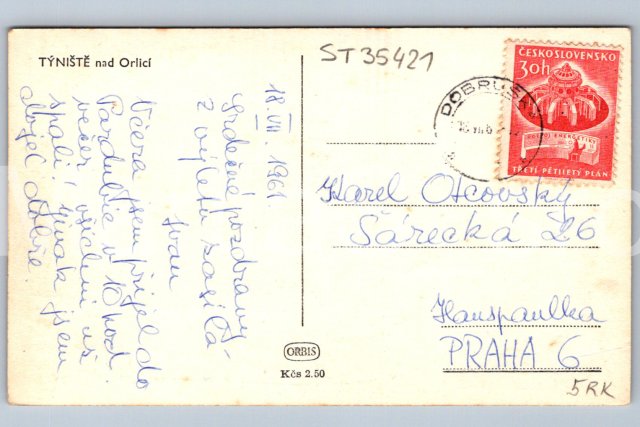 TÝNIŠTĚ nad Orlicí
ST 35421
18. VIII. 1961
Srdečné pozdravy
z výletu zasílá
Ivan
Včera jsem přijel do
Pardubic v 10 hod.
večer, všichni už
spali, jinak jsem
dojel dobře.
ČESKOSLOVENSKO
30h
ROZVOJ ENERGETIKY
TŘETÍ PĚTILETÝ PLÁN
DOBRUŠKA
Karel Otcovský
Šárecká 26
Hanspaulka
PRAHA 6
5RK
ORBIS
Kčs 2.50